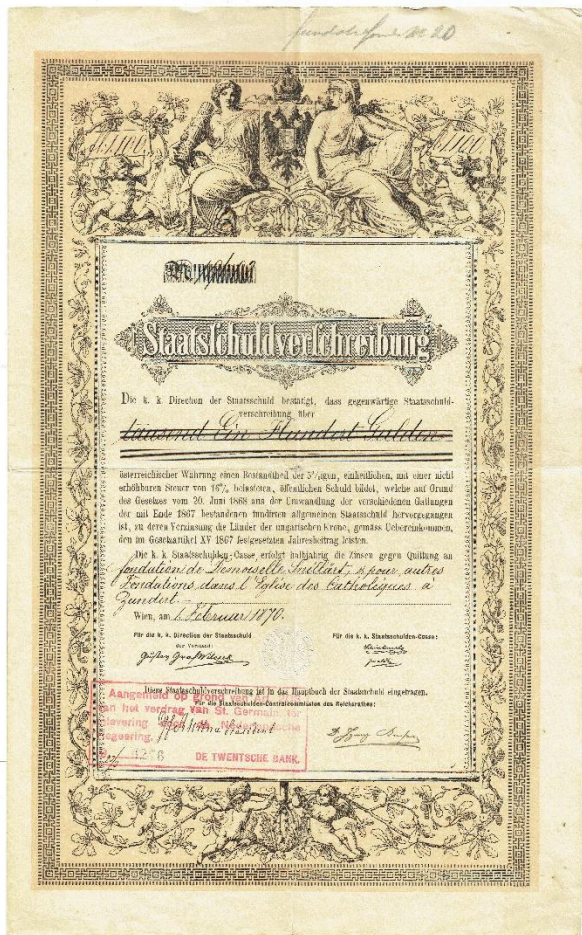 № 20
fl. 1100
fl. 1100
Staatsschuldverschreibung
Die k. k. Direction der Staatsschuld bestätigt, dass gegenwärtige Staatsschuld-
verschreibung über
tausend Ein Hundert Gulden
österreichischer Währung einen Bestandtheil der 5%igen, einheitlichen, mit einer nicht
erhöhbaren Steuer von 16% belasteten, öffentlichen Schuld bildet, welche auf Grund
des Gesetzes vom 20. Juni 1868 aus der Umwandlung der verschiedenen Gattungen
der mit Ende 1867 bestandenen fundirten allgemeinen Staatsschuld hervorgegangen
ist, zu deren Verzinsung die Länder der ungarischen Krone, gemäss Uebereinkommen,
den im Gesetzartikel XV 1867 festgesetzten Jahresbeitrag leisten.
Die k. k. Staatsschulden-Casse, erfolgt halbjährig die Zinsen gegen Quittung an
fondation de Demoiselle & pour autres
Fondations, dans l'Eglise des Catholiques a
Zundert.
Wien, am 1. Februar 1870.
Für die k. k. Direction der Staatsschuld
der Vorstand:
Für die k. k. Staatsschulden-Casse:
Gustav Graf
Diese Staatsschuldverschreibung ist in das Hauptbuch der Staatsschuld eingetragen.
Für die Staatsschulden-Controlcommission des Reichsrathes:
Aangemeld op grond van
van het verdrag van St. Germain, ter
uitlevering door de Nederlandsche
regeering.
DE TWENTSCHE BANK.